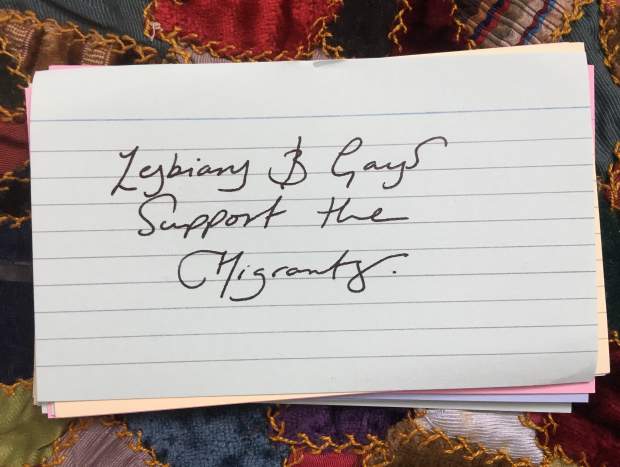 Lesbians & Gays
Support the
Migrants.